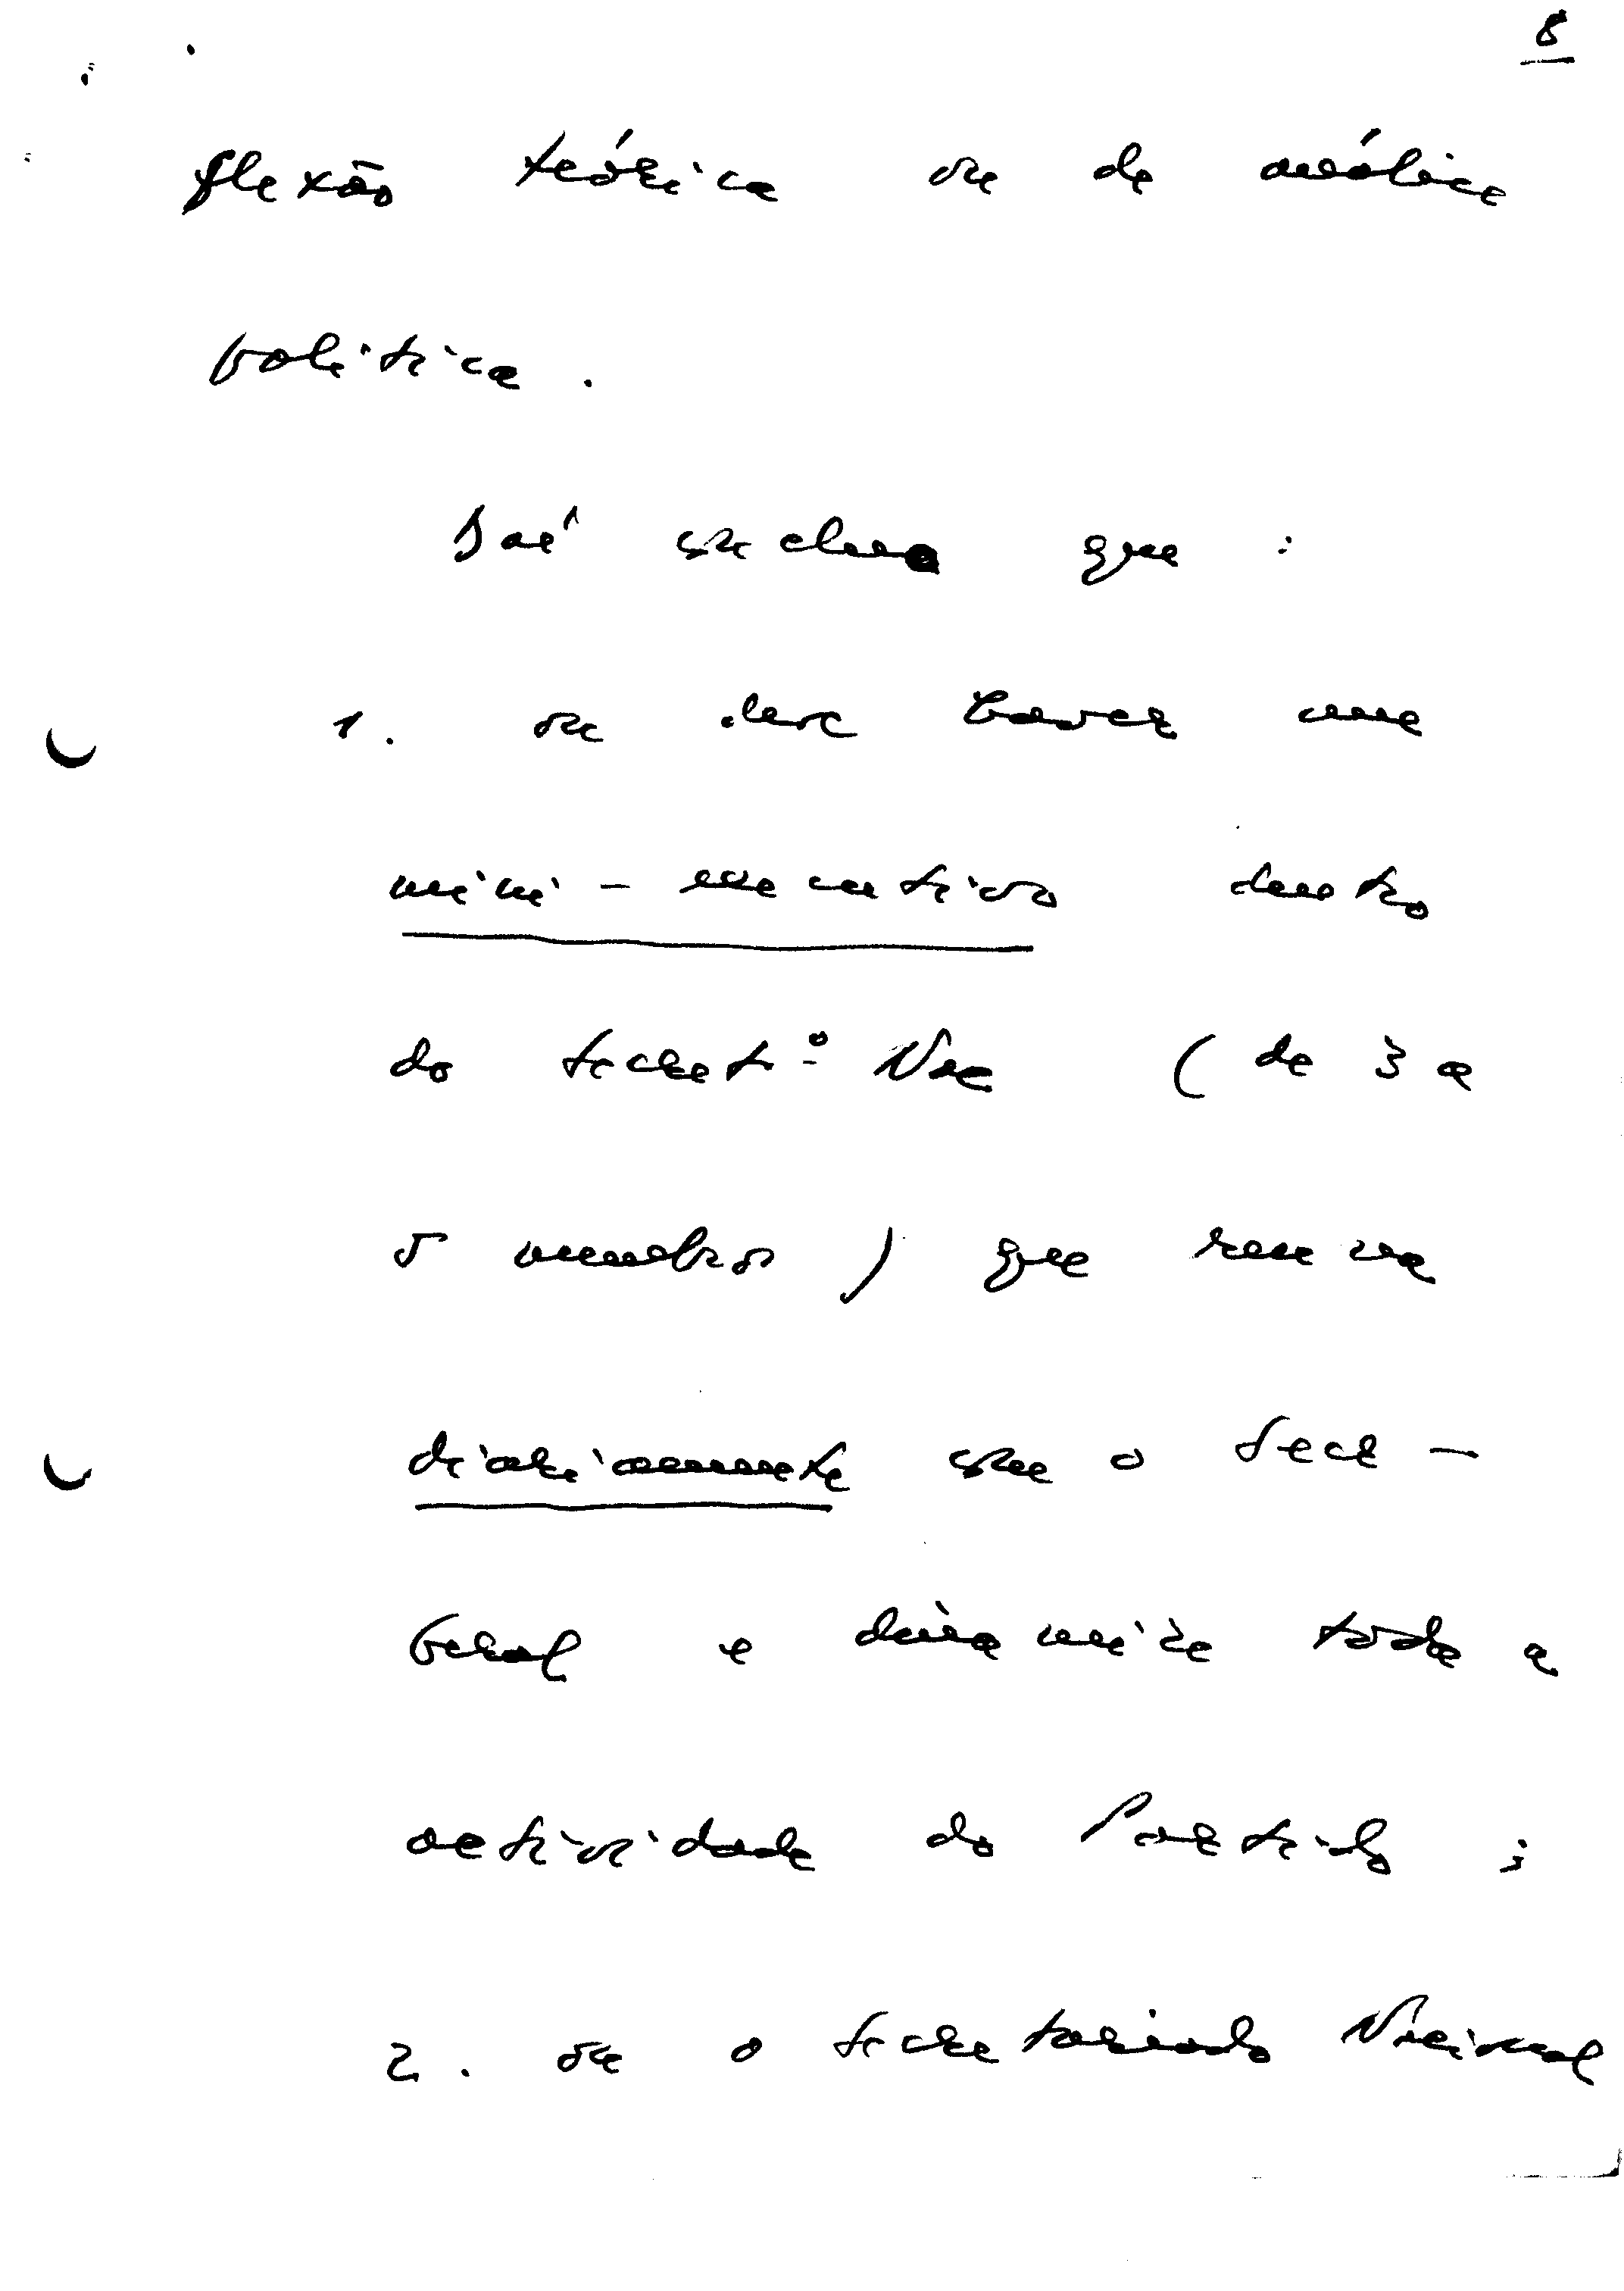 8
flexão teórica ou de análise
política.
Daí concluo que:
1. ou deve haver um
mini-executivo dentro
do Secret.º Nac (de 3 a
5 membros) que reuna
diariamente com o Secr-
Geral e dinamize toda a
actividade do Partido;
2. ou o Secretariado Nacional